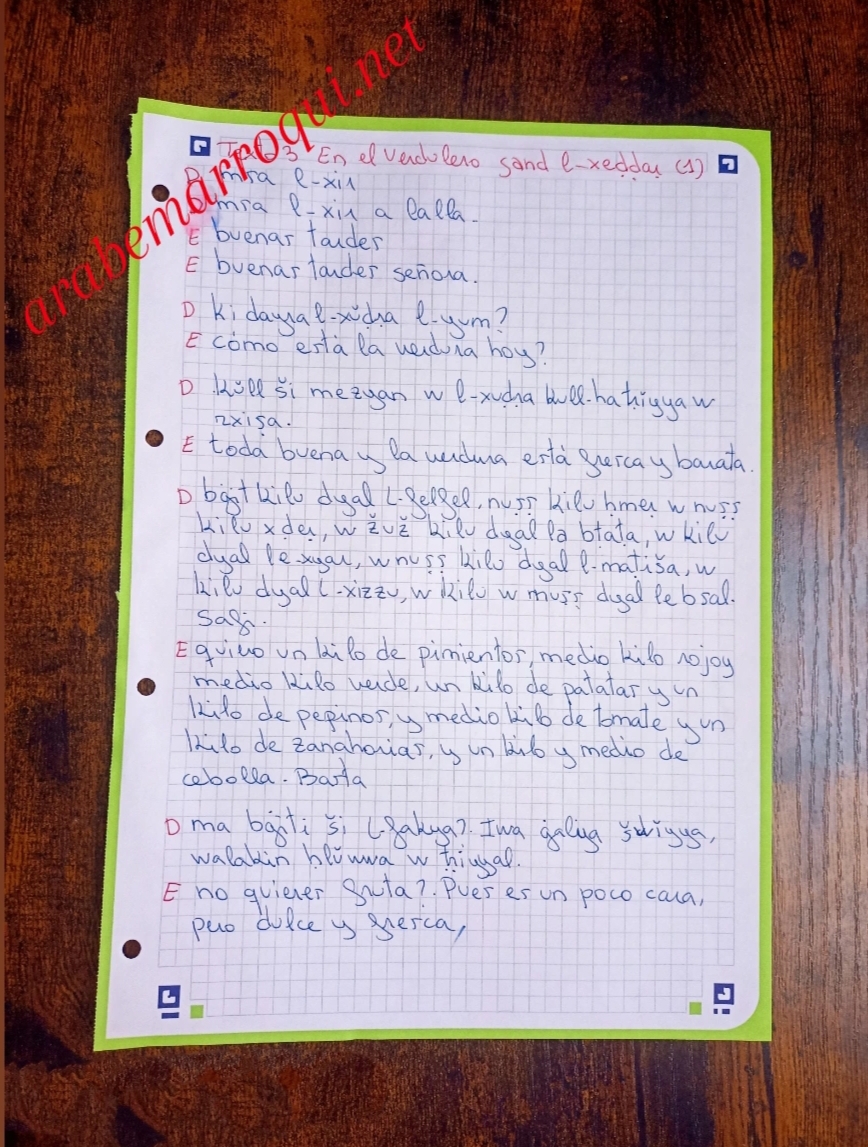 arabemarroqui.net
Text 3 En el verdulero ɛand l-xeḍḍaṛ (1)
D msa l-xir
D msa l-xir a lalla.
E buenas tardes
E buenas tardes señora.
D ki dayra l-xŭḍra l-yum?
E cómo está la verdura hoy?
D kŭll ši mezyan w l-xuḍra kull-ha ṭriyya w
rxiṣa.
E toda buena y la verdura está fresca y barata.
D bġit kilu dyal l-felfel, nuṣṣ kilu ḥmeṛ w nuṣṣ
kilu xdeṛ, w žuž kilu dyal la bṭaṭa, w kilu
dyal le xyar, w nuṣṣ kilu dyal l-maṭiša, w
kilu dyal l-xizzu, w kilu w nuṣṣ dyal le bsal.
Safi.
E quiero un kilo de pimientos, medio kilo rojo y
medio kilo verde, un kilo de patatas y un
kilo de pepinos, y medio kilo de tomate y un
kilo de zanahorias, y un kilo y medio de
cebolla. Basta
D ma bġiti ši l-fakya?. Iwa ġalya šwiyya,
walakin ḥluwwa w ṭriyya.
E no quieres fruta?. Pues es un poco cara,
pero dulce y fresca,